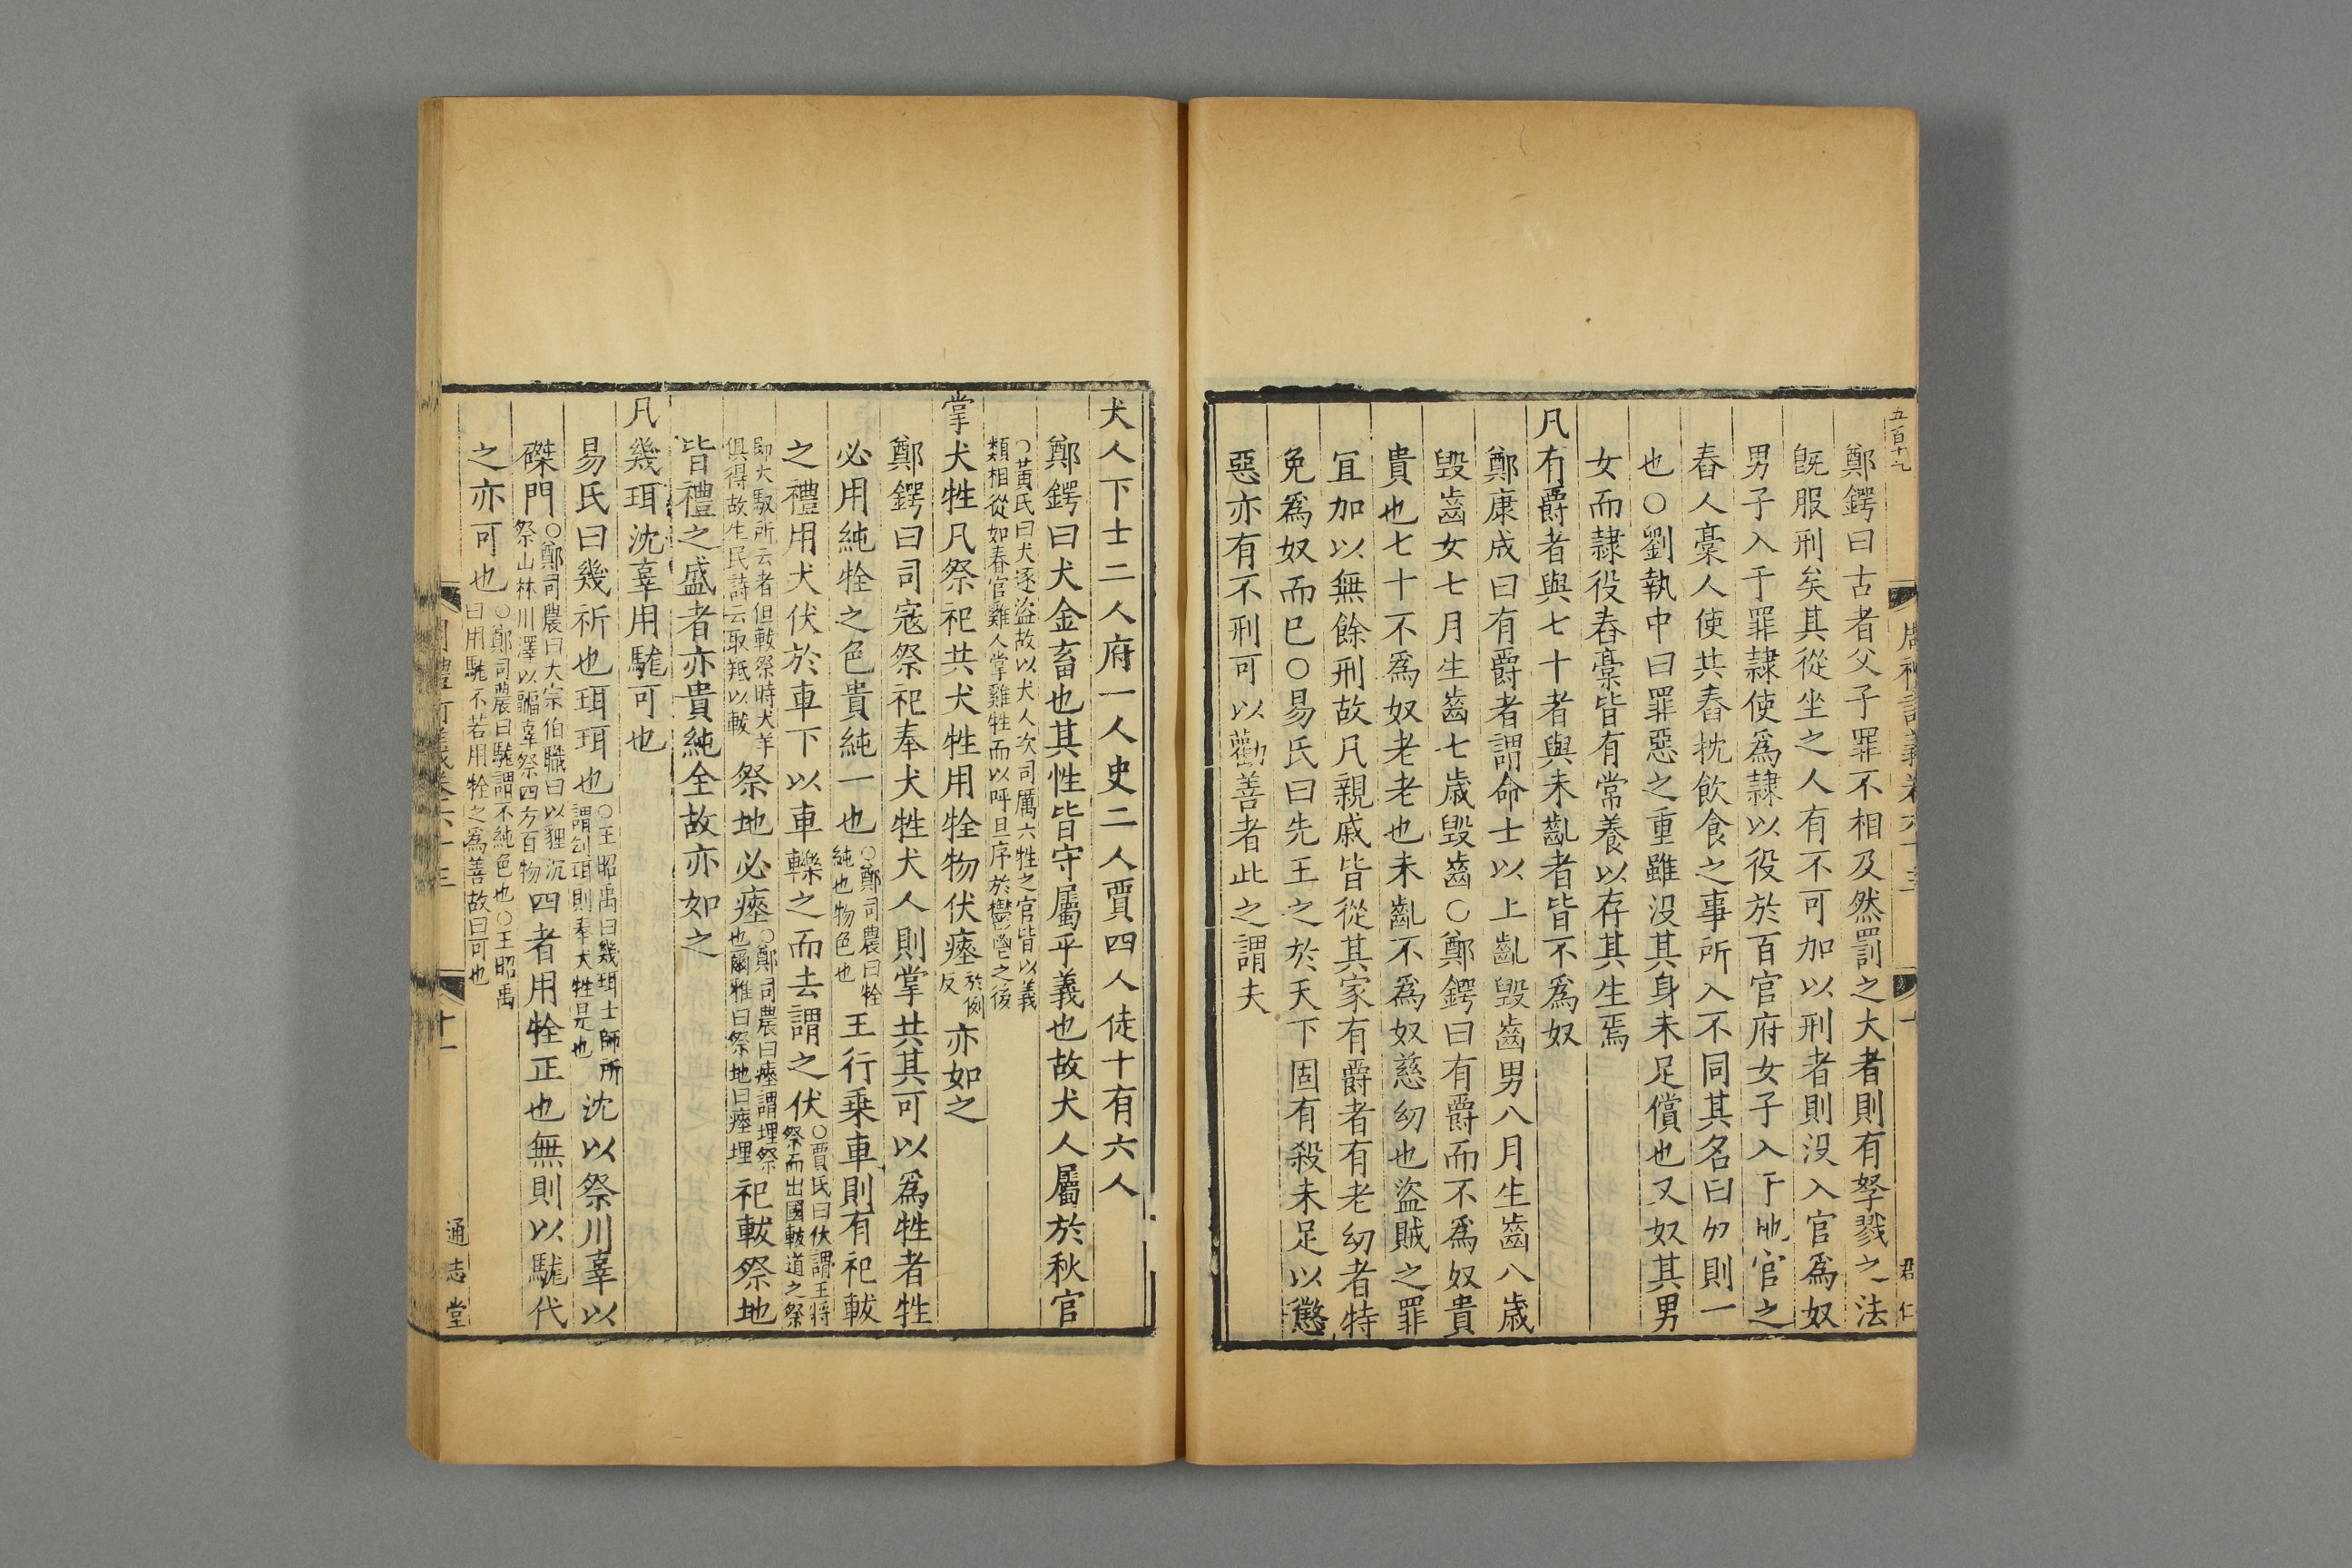 五百十九
鄭鍔曰古者父子罪不相及然罰之大者則有孥戮之法
旣服刑矣其從坐之人有不可加以刑者則没入官爲奴
男子入于罪隸使爲隸以役於百官府女子入于地官之
舂人槀人使共舂抌飲食之事所入不同其名曰奴則一
也○劉執中曰罪惡之重雖没其身未足償也又奴其男
女而隸役舂槀皆有常養以存其生焉
凡有爵者與七十者與未齓者皆不爲奴
鄭康成曰有爵者謂命士以上齓毀齒男八月生齒八歲
毀齒女七月生齒七歲毀齒○鄭鍔曰有爵而不爲奴貴
貴也七十不爲奴老老也未齓不爲奴慈幼也盜賊之罪
宜加以無餘刑故凡親戚皆從其家有爵者有老幼者特
免爲奴而已○易氏曰先王之於天下固有殺未足以懲
惡亦有不刑可以勸善者此之謂夫
犬人下士二人府一人史二人賈四人徒十有六人
鄭鍔曰犬金畜也其性皆守屬乎義也故犬人屬於秋官
○黃氏曰犬逐盜故以犬人次司厲六牲之官皆以義
類相從如春官雞人掌雞牲而以呼旦序於鬱鬯之後
掌犬牲凡祭祀共犬牲用牷物伏瘞於例反亦如之
鄭鍔曰司寇祭祀奉犬牲犬人則掌共其可以爲牲者牲
必用純牷之色貴純一也○鄭司農曰牷純也物色也王行乗車則有祀軷
之禮用犬伏於車下以車轢之而去謂之伏○賈氏曰伏謂王將祭而出國軷道之祭
即大馭所云者但軷祭時犬羊俱得故生民詩云取羝以軷祭地必瘞○鄭司農曰瘞謂埋祭也爾雅曰祭地曰瘞埋祀軷祭地
皆禮之盛者亦貴純全故亦如之
凡幾珥沈辜用駹可也
易氏曰幾祈也珥珥也○王昭禹曰幾珥士師所謂刉珥則奉犬牲是也沈以祭川辜以
磔門○鄭司農曰大宗伯職曰以貍沉祭山林川澤以疈辜祭四方百物四者用牷正也無則以駹代
之亦可也○鄭司農曰駹謂不純色也○王昭禹曰用駹不若用牷之爲善故曰可也
十一
通志堂